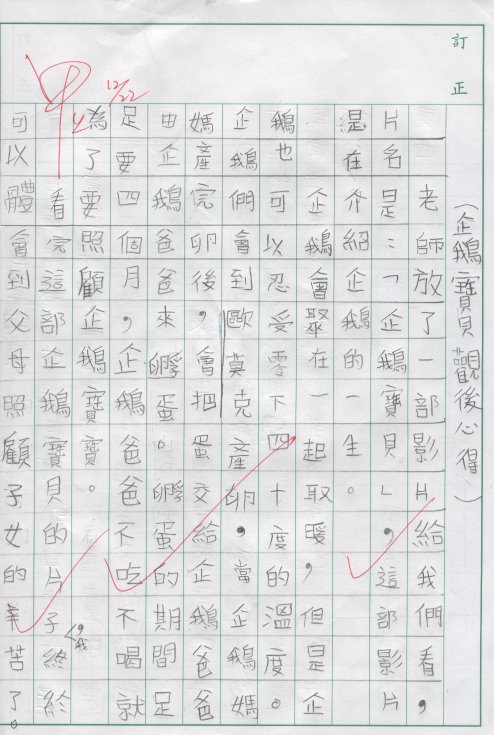 訂正
(企鵝寶貝觀後心得)
老師放了一部影片給我們看,
片名是:「企鵝寶貝」,這部影片,
是在介紹企鵝的一生。
企鵝會聚在一起取暖,但是企
鵝也可以忍受零下四十度的溫度。
企鵝們會到歐莫克產卵,當企鵝媽
媽產完卵後,會把蛋交給企鵝爸爸
由企鵝爸爸來孵蛋。孵蛋的期間足
足要四個月,企鵝爸爸不吃不喝就
為了要照顧企鵝寶寶。
看完這部企鵝寶貝的片子,我終於
可以體會到父母照顧子女的辛苦了。
甲上
12/22